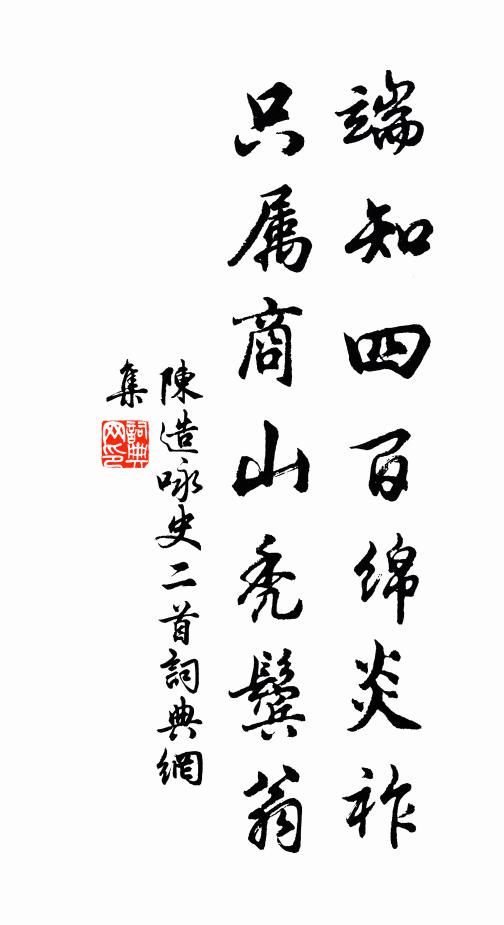 端知四百綿炎祚
只属商山禿鬢翁
陳造咏史二首詞典網
集
詞典
网印